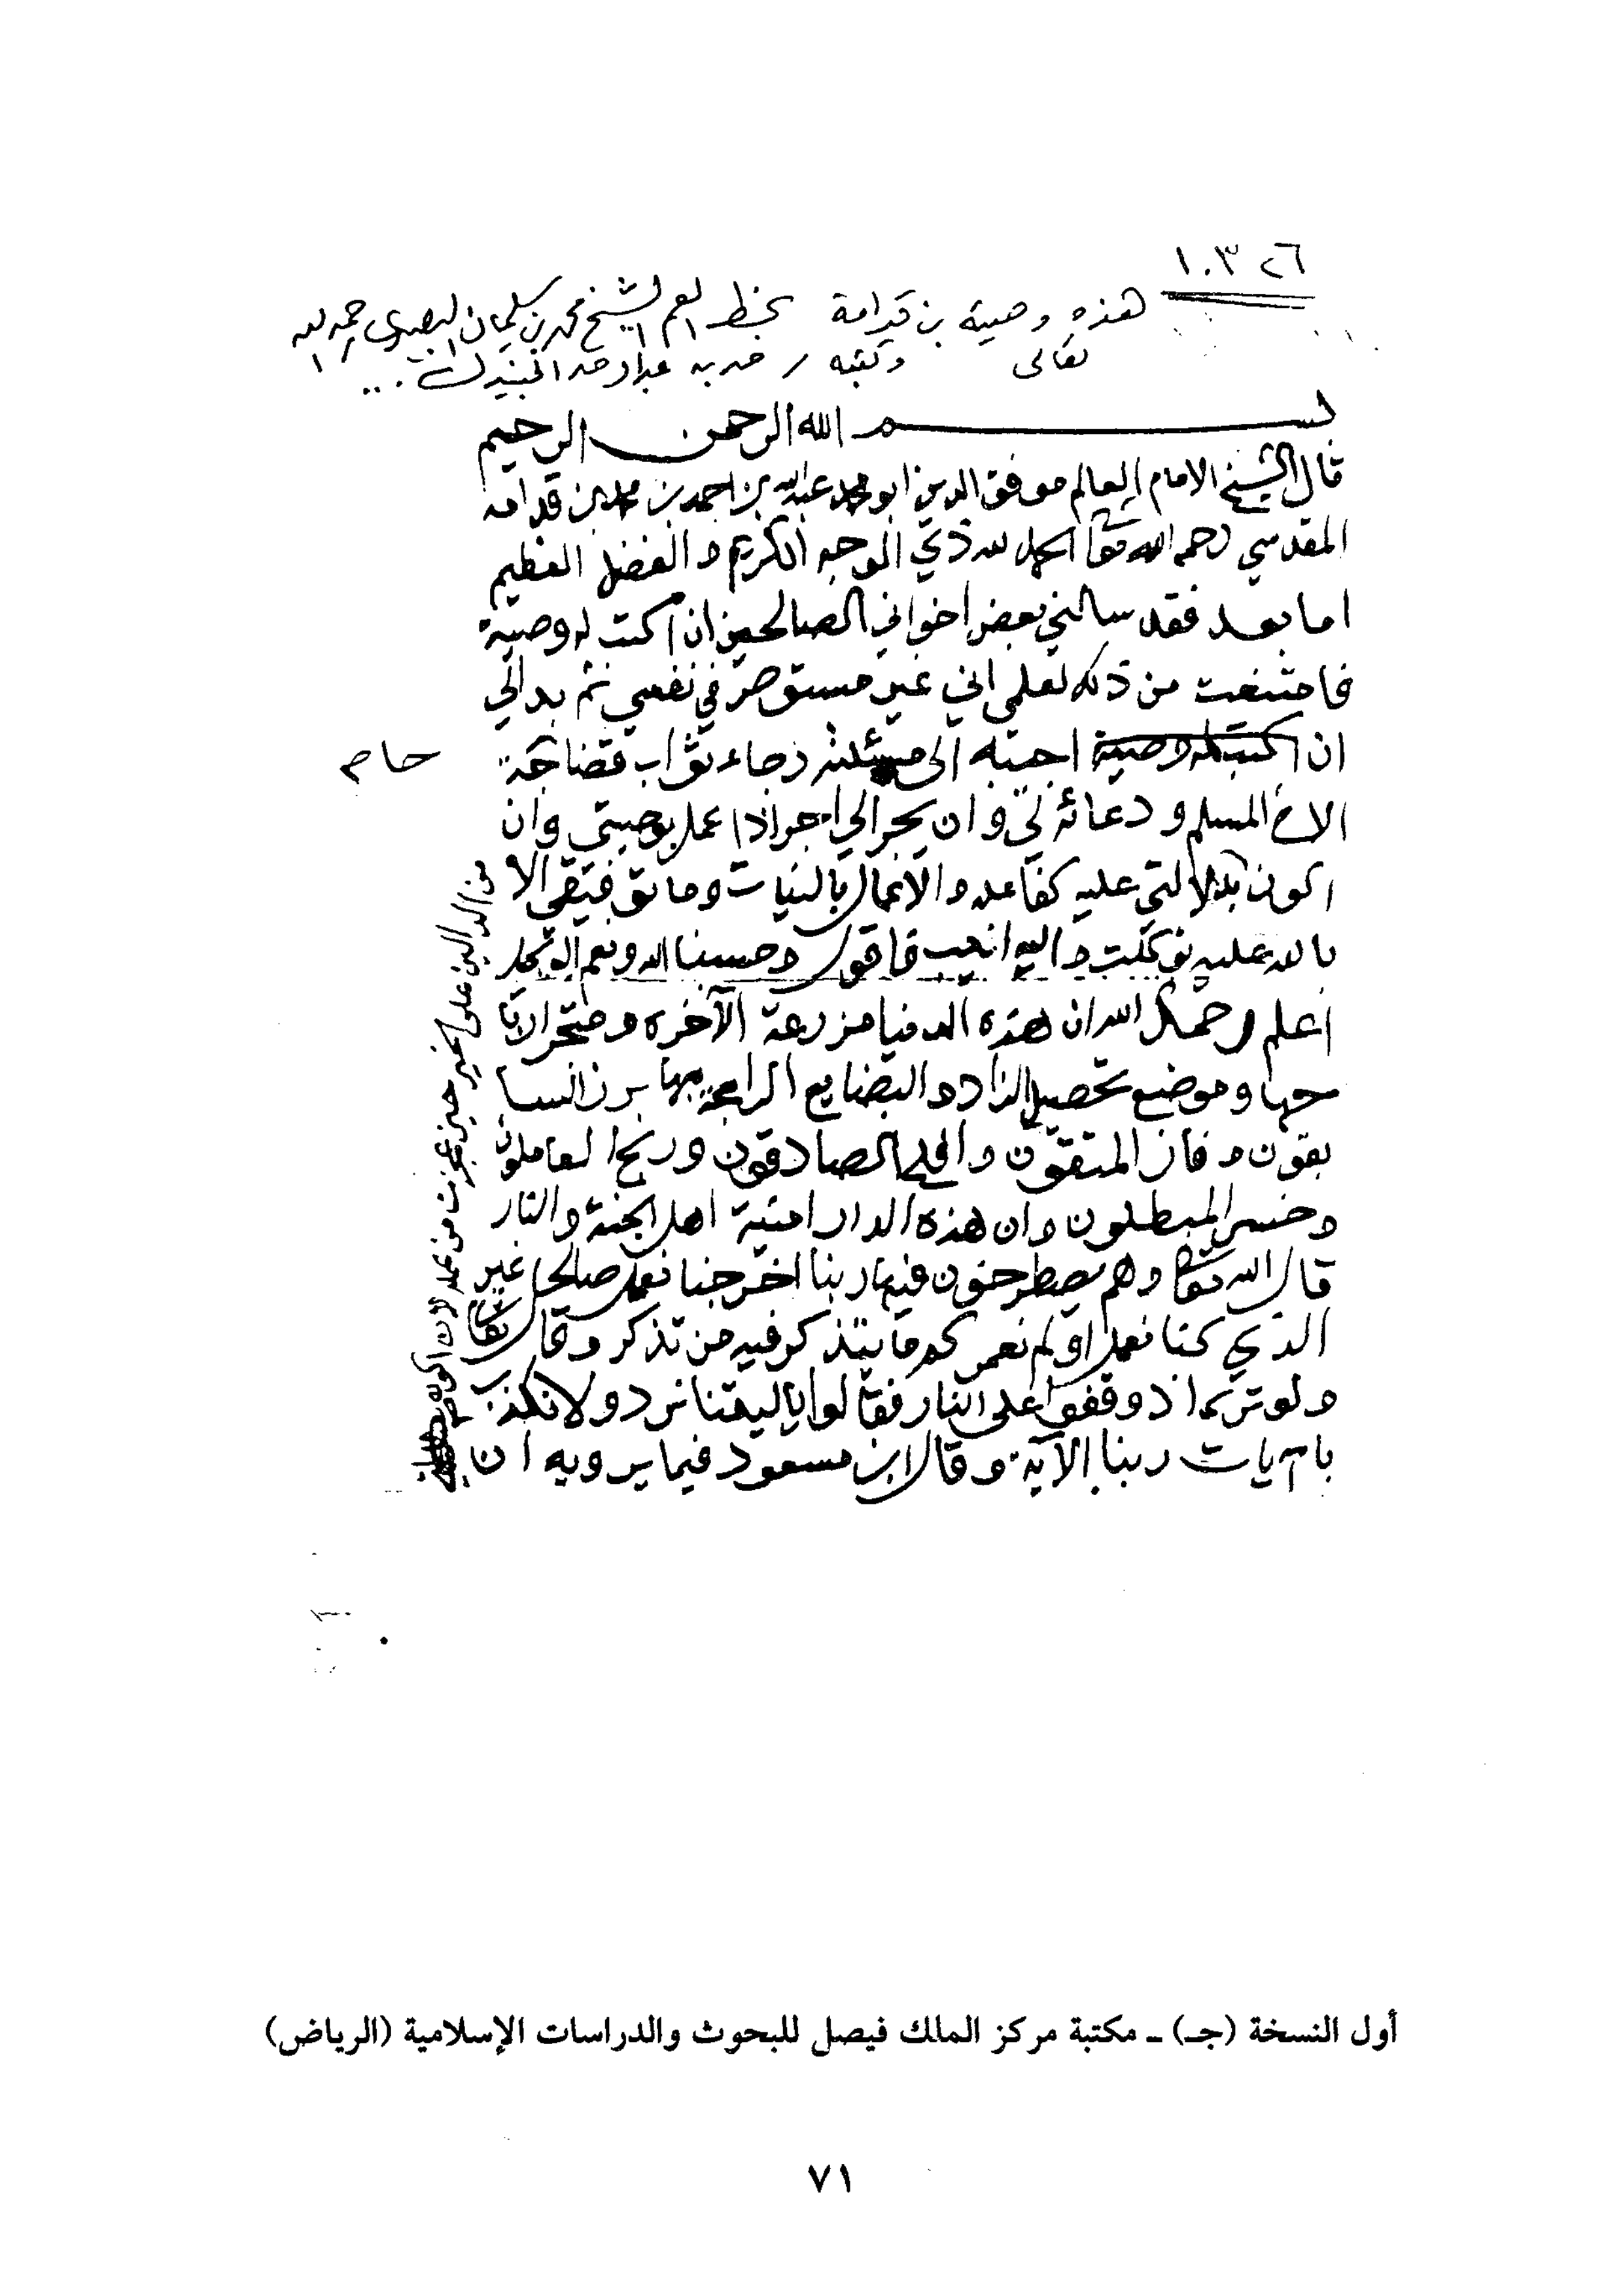 ١٠٣٢٦
هذه وصية بن قدامة بخط العم الشيخ محمد بن سليمان البصيري رحمه الله
تعالى وكتبه
بسم الله الرحمن الرحيم
قال الشيخ الامام العالم موفق الدين ابو محمد عبدالله بن احمد بن محمد بن قدامه
المقدسي رحمه الله تعا الحمد لله ذي الوجه الكريم والفضل العظيم
اما بعد فقد سالني بعض اخواني الصالحين ان اكتب له وصية
فامتنعت من ذلك لعلمي اني غير مستوص في نفسي ثم بدالي
ان اكتب له وصية اجبته الى مسئلته رجاء ثواب قضا حاجة
الاخ المسلم ودعائه لي وان يجر الي اجر اذا عمل بوصيتي وان
اكون بدلالتي عليه كفاعله والاعمال بالنيات وما توفيقي الا
بالله عليه توكلت واليه انيب فاقول وحسبنا الله ونعم الوكيل
اعلم رحمك الله ان هذه الدنيا مزرعة الآخره ومتجر اربا
حها وموضع تحصيل الزاد والبضايع الرابحة بها برز السا
بقون وفاز المتقون وافلح الصادقون وربح العاملون
وخسر المبطلون وان هذه الدار امنية اهل الجنة والنار
قال الله تعا وهم يصطرخون فيها ربنا اخرجنا نعمل صالحا غير
الذي كنا نعمل اولم نعمركم ما يتذكر فيه من تذكر وقال تعا
ولو ترى اذ وقفوا على النار فقالوا ياليتنا نرد ولا نكذب
بآيات ربنا الآية وقال ابن مسعود فيما يرويه ان
من الدالين على الخير حين عجزت من عمله لان اكون
أول النسخة (جـ) ـ مكتبة مركز الملك فيصل للبحوث والدراسات الإسلامية (الرياض)
٧١